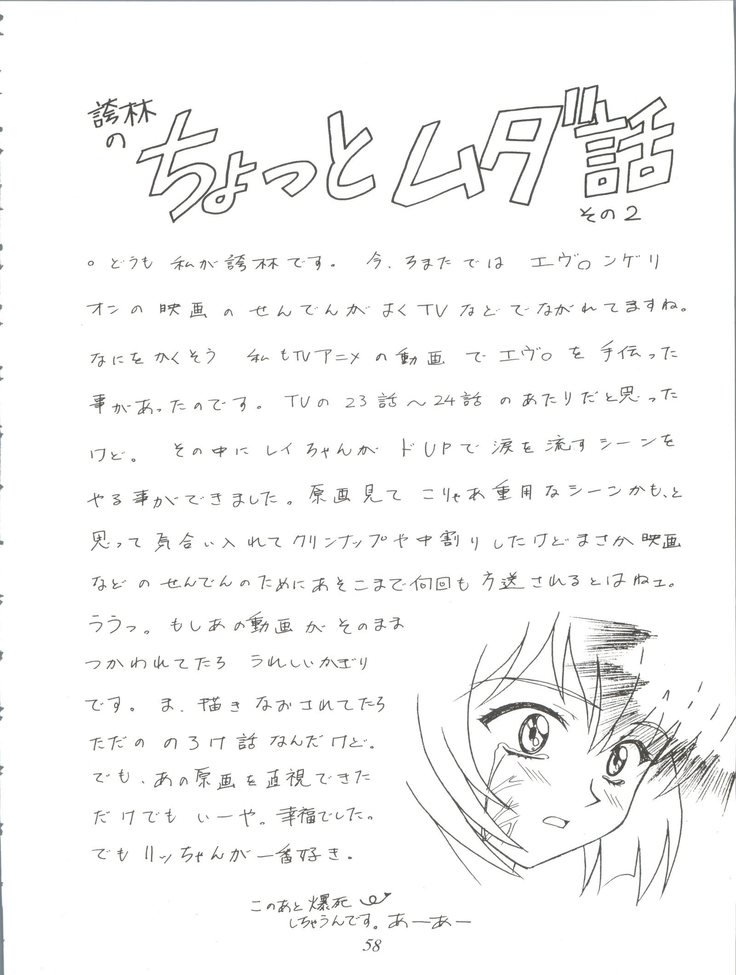 誇林
の
ちょっとムダ話
その2
○どうも 私が誇林です。 今、ちまたでは エヴ○ンゲリ
オンの映画のせんでんがよくTVなどでながれてますね。
なにをかくそう 私もTVアニメの動画でエヴ○を手伝った
事があったのです。TVの23話〜24話のあたりだと思った
けど。 その中にレイちゃんがドUPで涙を流すシーンを
やる事ができました。原画見てこりゃあ重用なシーンかも、と
思って気合い入れてクリンナップや中割りしたけどまさか映画
などのせんでんのためにあそこまで何回も方送されるとはねェ。
ううっ。もしあの動画がそのまま
つかわれてたら うれしいかぎり
です。ま、描きなおされてたら
ただの のろけ話なんだけど。
でも、あの原画を直視できた
だけでも いーや。幸福でした。
でもリッちゃんが一番好き。
このあと爆死
しちゃうんです。あーあー
58